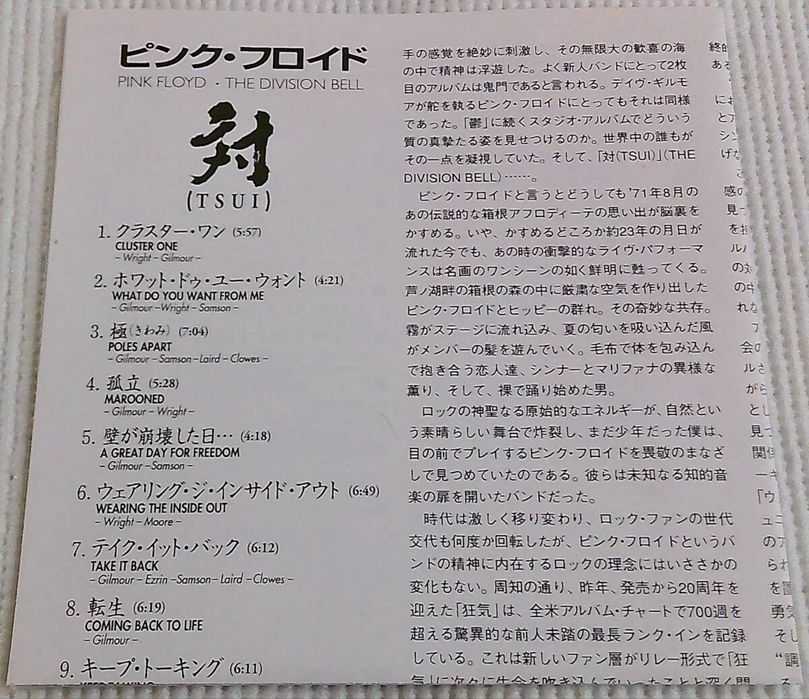 ピンク・フロイド
PINK FLOYD ・ THE DIVISION BELL
対
(TSUI)
1. クラスター・ワン (5:57)
CLUSTER ONE
– Wright – Gilmour –
2. ホワット・ドゥ・ユー・ウォント (4:21)
WHAT DO YOU WANT FROM ME
– Gilmour – Wright – Samson –
3. 極(きわみ) (7:04)
POLES APART
– Gilmour – Samson – Laird – Clowes –
4. 孤立 (5:28)
MAROONED
– Gilmour – Wright –
5. 壁が崩壊した日… (4:18)
A GREAT DAY FOR FREEDOM
– Gilmour – Samson –
6. ウェアリング・ジ・インサイド・アウト (6:49)
WEARING THE INSIDE OUT
– Wright – Moore –
7. テイク・イット・バック (6:12)
TAKE IT BACK
– Gilmour – Ezrin – Samson – Laird – Clowes –
8. 転生 (6:19)
COMING BACK TO LIFE
– Gilmour –
9. キープ・トーキング (6:11)
KEEP TALKING
手の感覚を絶妙に刺激し、その無限大の歓喜の海
の中で精神は浮遊した。よく新人バンドにとって2枚
目のアルバムは鬼門であると言われる。デイヴ・ギルモ
アが舵を執るピンク・フロイドにとってもそれは同様
であった。「鬱」に続くスタジオ・アルバムでどういう
質の真摯たる姿を見せつけるのか。世界中の誰もが
その一点を凝視していた。そして、「対(TSUI)」(THE
DIVISION BELL)……。
ピンク・フロイドと言うとどうしても'71年8月の
あの伝説的な箱根アフロディーテの思い出が脳裏を
かすめる。いや、かすめるどころか約23年の月日が
流れた今でも、あの時の衝撃的なライヴ・パフォーマ
ンスは名画のワンシーンの如く鮮明に甦ってくる。
芦ノ湖畔の箱根の森の中に厳粛な空気を作り出した
ピンク・フロイドとヒッピーの群れ。その奇妙な共存。
霧がステージに流れ込み、夏の匂いを吸い込んだ風
がメンバーの髪を遊んでいく。毛布で体を包み込ん
で抱き合う恋人達、シンナーとマリファナの異様な
薫り、そして、裸で踊り始めた男。
ロックの神聖なる原始的なエネルギーが、自然とい
う素晴らしい舞台で炸裂し、まだ少年だった僕は、
目の前でプレイするピンク・フロイドを畏敬のまなざ
しで見つめていたのである。彼らは未知なる知的音
楽の扉を開いたバンドだった。
時代は激しく移り変わり、ロック・ファンの世代
交代も何度か回転したが、ピンク・フロイドというバ
ンドの精神に内在するロックの理念にはいささかの
変化もない。周知の通り、昨年、発売から20周年を
迎えた「狂気」は、全米アルバム・チャートで700週を
超える驚異的な前人未踏の最長ランク・インを記録
している。これは新しいファン層がリレー形式で「狂
気」に次々に生命を吹き込んでいったことと深く関